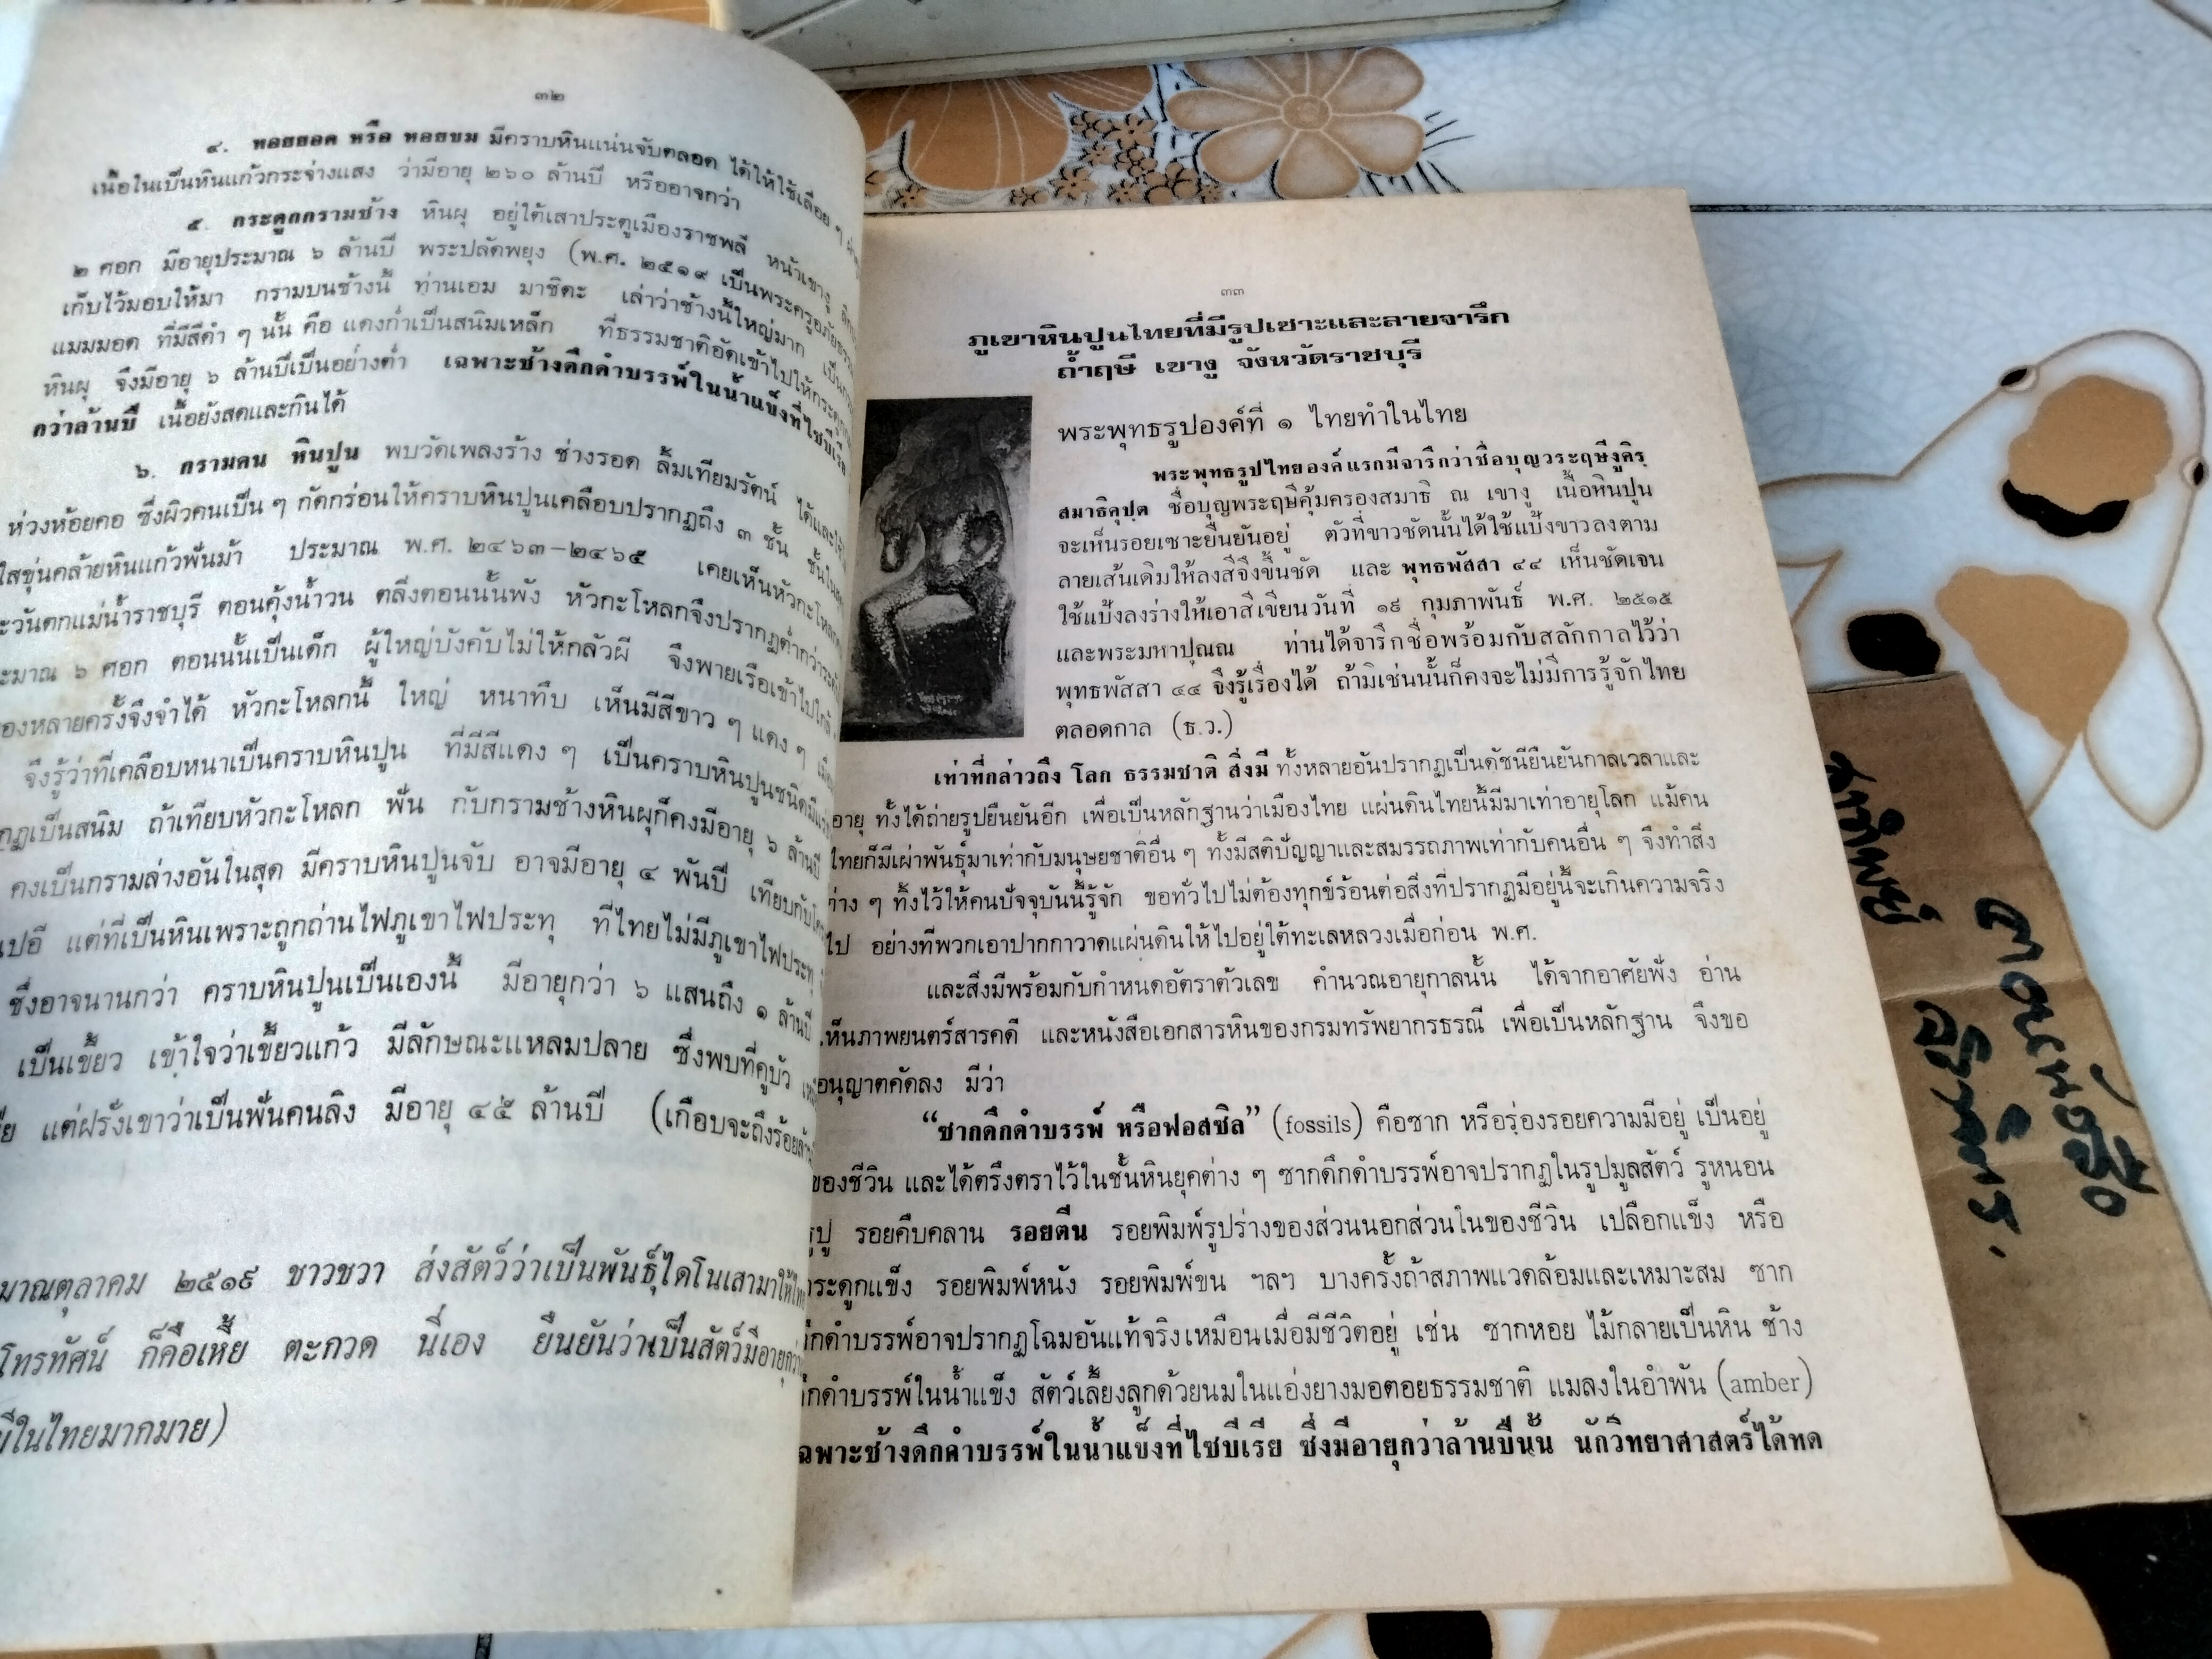 ๓๒
๔. หอยยอด หรือ หอยขม มีคราบหินแน่นจับตลอด ได้ให้ใช้เลื่อย ๆ
เนื้อในเป็นหินแก้วกระจ่างแสง ว่ามีอายุ ๒๖๐ ล้านปี หรืออาจกว่า
๕. กระดูกกรามช้าง หินผุ อยู่ใต้เสาประตูเมืองราชพลี หน้าเขางู
๒ ศอก มีอายุประมาณ ๖ ล้านปี พระปลัดพยุง (พ.ศ. ๒๕๑๙ เป็นพระครูอภัย
เก็บไว้มอบให้มา กรามบนช้างนี้ ท่านเอม มาชิดะ เล่าว่าช้างนี้ใหญ่มาก เป็น
แมมมอด ที่มีสีดำ ๆ นั้น คือ แดงก่ำเป็นสนิมเหล็ก ที่ธรรมชาติอัดเข้าไปให้กระดูก
หินผุ จึงมีอายุ ๖ ล้านปีเป็นอย่างต่ำ เฉพาะช้างดึกดำบรรพ์ในน้ำแข็งที่ไซบีเรีย
กว่าล้านปี เนื้อยังสดและกินได้
๖. กรามคน หินปูน พบวัดเพลงร้าง ช่างรอด ลิ้มเทียมรัตน์ ได้และใช้
ห่วงห้อยคอ ซึ่งผิวคนเป็น ๆ กัดกร่อนให้คราบหินปูนเคลือบปรากฏถึง ๓ ชั้น ชั้นใน
ใสขุ่นคล้ายหินแก้วฟันม้า ประมาณ พ.ศ. ๒๔๖๓–๒๔๖๕ เคยเห็นหัวกะโหลก
ะวันตกแม่น้ำราชบุรี ตอนคุ้งน้ำวน ตลิ่งตอนนั้นพัง หัวกะโหลกจึงปรากฏต่ำกว่าระดับ
ะมาณ ๖ ศอก ตอนนั้นเป็นเด็ก ผู้ใหญ่บังคับไม่ให้กลัวผี จึงพายเรือเข้าไปใกล้
องหลายครั้งจึงจำได้ หัวกะโหลกนี้ ใหญ่ หนาทึบ เห็นมีสีขาว ๆ แดง ๆ
จึงรู้ว่าที่เคลือบหนาเป็นคราบหินปูน ที่มีสีแดง ๆ เป็นคราบหินปูนชนิดมีแร่
กฏเป็นสนิม ถ้าเทียบหัวกะโหลก ฟัน กับกรามช้างหินผุก็คงมีอายุ ๖ ล้านปี
คงเป็นกรามล่างอันในสุด มีคราบหินปูนจับ อาจมีอายุ ๔ พันปี เทียบกับ
เปอี แต่ที่เป็นหินเพราะถูกถ่านไฟภูเขาไฟประทุ ที่ไทยไม่มีภูเขาไฟประทุ
ซึ่งอาจนานกว่า คราบหินปูนเป็นเองนี้ มีอายุกว่า ๖ แสนถึง ๑ ล้านปี
เป็นเขี้ยว เข้าใจว่าเขี้ยวแก้ว มีลักษณะแหลมปลาย ซึ่งพบที่คูบัว
แต่ฝรั่งเขาว่าเป็นฟันคนลิง มีอายุ ๔๕ ล้านปี (เกือบจะถึงร้อยล้าน
มาณตุลาคม ๒๕๑๙ ชาวชวา ส่งสัตว์ว่าเป็นพันธุ์ไดโนเสามาให้ไทย
โทรทัศน์ ก็คือเหี้ย ตะกวด นี่เอง ยืนยันว่าเป็นสัตว์มีอายุกว่า
มีในไทยมากมาย)
๓๓
ภูเขาหินปูนไทยที่มีรูปเซาะและลายจารึก
ถ้ำฤษี เขางู จังหวัดราชบุรี
พระพุทธรูปองค์ที่ ๑ ไทยทำในไทย
พระพุทธรูปไทยองค์แรกมีจารึกว่าชื่อบุญวระฤษีงูคิรฺ
สมาธิคุปฺต ชื่อบุญพระฤษีคุ้มครองสมาธิ ณ เขางู เนื้อหินปูน
จะเห็นรอยเซาะยืนยันอยู่ ตัวที่ขาวชัดนั้นได้ใช้แป้งขาวลงตาม
ลายเส้นเดิมให้ลงสีจึงขึ้นชัด และ พุทธพัสสา ๔๔ เห็นชัดเจน
ใช้แป้งลงร่างให้เอาสีเขียนวันที่ ๑๙ กุมภาพันธ์ พ.ศ. ๒๕๑๕
และพระมหาปุณณ ท่านได้จารึกชื่อพร้อมกับสลักกาลไว้ว่า
พุทธพัสสา ๔๔ จึงรู้เรื่องได้ ถ้ามิเช่นนั้นก็คงจะไม่มีการรู้จักไทย
ตลอดกาล (ธ.ว.)
เท่าที่กล่าวถึง โลก ธรรมชาติ สิ่งมี ทั้งหลายอันปรากฏเป็นดัชนียืนยันกาลเวลาและ
อายุ ทั้งได้ถ่ายรูปยืนยันอีก เพื่อเป็นหลักฐานว่าเมืองไทย แผ่นดินไทยนี้มีมาเท่าอายุโลก แม้คน
ไทยก็มีเผ่าพันธุ์มาเท่ากับมนุษยชาติอื่น ๆ ทั้งมีสติปัญญาและสมรรถภาพเท่ากับคนอื่น ๆ จึงทำสิ่ง
ต่าง ๆ ทิ้งไว้ให้คนปัจจุบันนี้รู้จัก ขอทั่วไปไม่ต้องทุกข์ร้อนต่อสิ่งที่ปรากฏมีอยู่นี้จะเกินความจริง
ไป อย่างที่พวกเอาปากกาวาดแผ่นดินให้ไปอยู่ใต้ทะเลหลวงเมื่อก่อน พ.ศ.
และสิ่งมีพร้อมกับกำหนดอัตราตัวเลข คำนวณอายุกาลนั้น ได้จากอาศัยฟัง อ่าน
เห็นภาพยนตร์สารคดี และหนังสือเอกสารหินของกรมทรัพยากรธรณี เพื่อเป็นหลักฐาน จึงขอ
อนุญาตคัดลง มีว่า
“ซากดึกดำบรรพ์ หรือฟอสซิล” (fossils) คือซาก หรือร่องรอยความมีอยู่ เป็นอยู่
ของชีวิน และได้ตรึงตราไว้ในชั้นหินยุคต่าง ๆ ซากดึกดำบรรพ์อาจปรากฏในรูปมูลสัตว์ รูหนอน
รูปู รอยคืบคลาน รอยตีน รอยพิมพ์รูปร่างของส่วนนอกส่วนในของชีวิน เปลือกแข็ง หรือ
กระดูกแข็ง รอยพิมพ์หนัง รอยพิมพ์ขน ฯลฯ บางครั้งถ้าสภาพแวดล้อมและเหมาะสม ซาก
ดึกดำบรรพ์อาจปรากฏโฉมอันแท้จริงเหมือนเมื่อมีชีวิตอยู่ เช่น ซากหอย ไม้กลายเป็นหิน ช้าง
ดึกดำบรรพ์ในน้ำแข็ง สัตว์เลี้ยงลูกด้วยนมในแอ่งยางมอตอยธรรมชาติ แมลงในอำพัน (amber)
เฉพาะช้างดึกดำบรรพ์ในน้ำแข็งที่ไซบีเรีย ซึ่งมีอายุกว่าล้านปีนั้น นักวิทยาศาสตร์ได้ทด